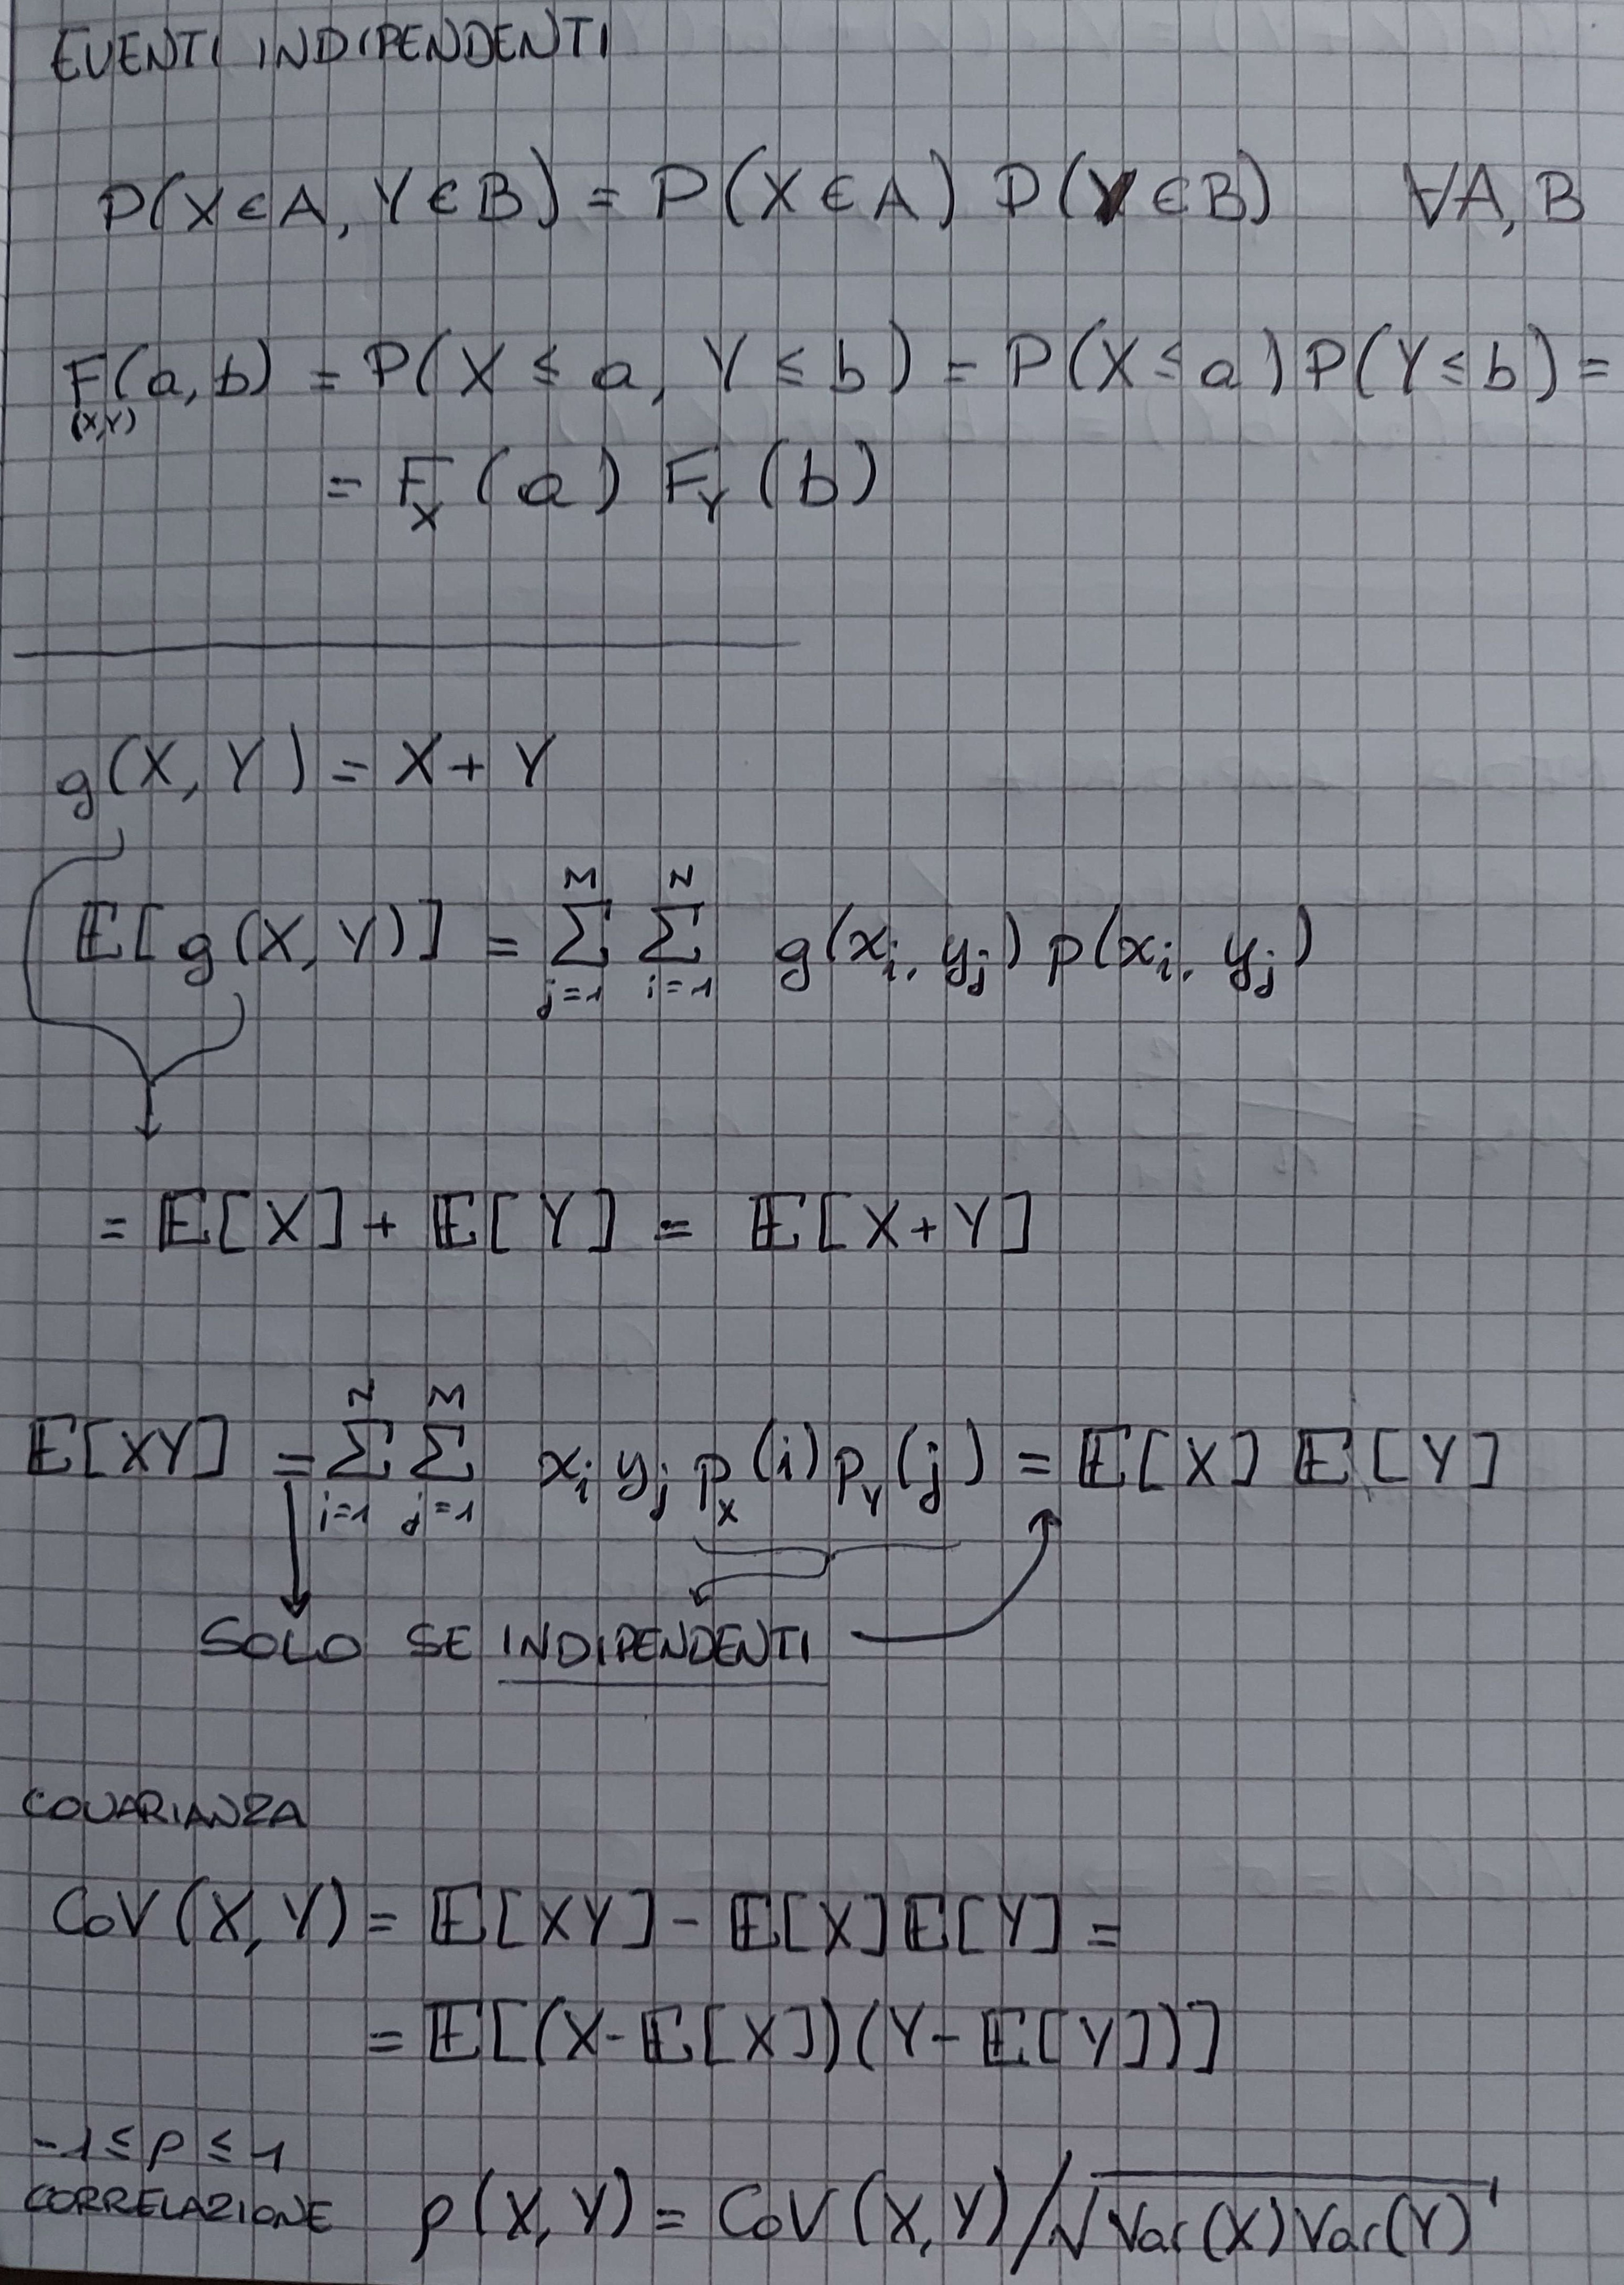 EVENTI INDIPENDENTI
P(X∈A, Y∈B) = P(X∈A) P(Y∈B) ∀A, B
F_(X,Y)(a, b) = P(X ≤ a, Y ≤ b) = P(X ≤ a) P(Y ≤ b) =
= F_X(a) F_Y(b)
g(X, Y) = X + Y
E[g(X, Y)] = Σ_{j=1}^{M} Σ_{i=1}^{N} g(x_i, y_j) p(x_i, y_j)
= E[X] + E[Y] = E[X+Y]
E[XY] = Σ_{i=1}^{N} Σ_{j=1}^{M} x_i y_j p_X(i) p_Y(j) = E[X] E[Y]
SOLO SE INDIPENDENTI
COVARIANZA
CoV(X, Y) = E[XY] - E[X]E[Y] =
= E[(X-E[X])(Y-E[Y])]
-1 ≤ ρ ≤ 1
CORRELAZIONE ρ(X, Y) = CoV(X, Y)/√Var(X)Var(Y)